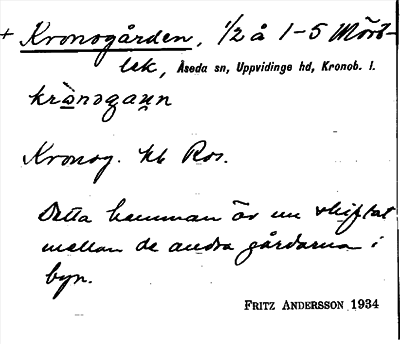 + Kronogården, 1/2 å 1-5 Mört-
lek, Åseda sn, Uppvidinge hd, Kronob. l.
krònogaṷn
Kronog. Kb Ros.
Detta hemman är nu skiftat
mellan de andra gårdarna i
byn.
FRITZ ANDERSSON 1934